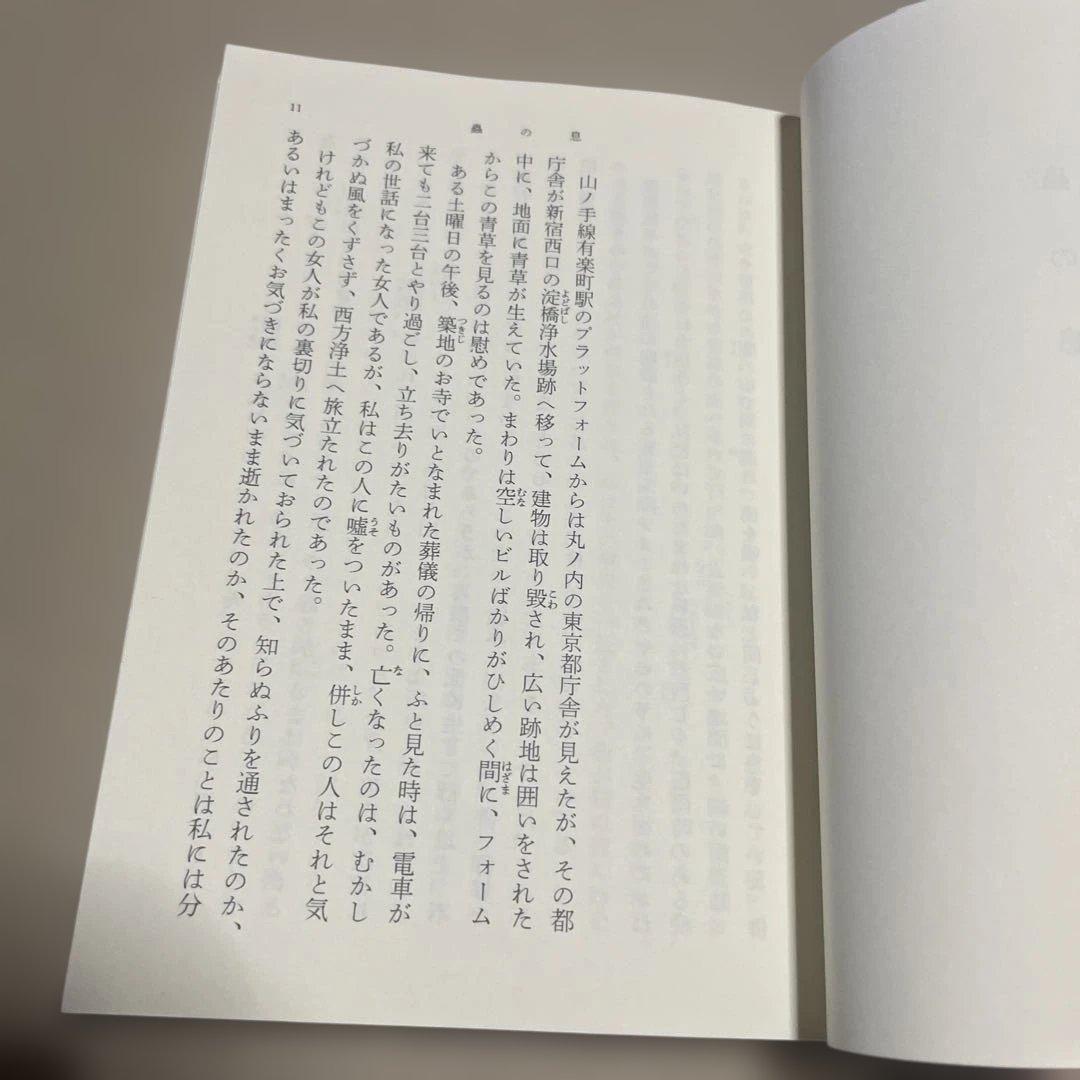 11
蟲の息
山ノ手線有楽町駅のプラットフォームからは丸ノ内の東京都庁舎が見えたが、その都
庁舎が新宿西口の淀橋浄水場跡へ移って、建物は取り毀され、広い跡地は囲いをされた
よどばし
こわ
中に、地面に青草が生えていた。まわりは空しいビルばかりがひしめく間に、フォーム
むな
はざま
からこの青草を見るのは慰めであった。
ある土曜日の午後、築地のお寺でいとなまれた葬儀の帰りに、ふと見た時は、電車が
つきじ
来ても二台三台とやり過ごし、立ち去りがたいものがあった。亡くなったのは、むかし
な
私の世話になった女人であるが、私はこの人に嘘をついたまま、併しこの人はそれと気
うそ
しか
づかぬ風をくずさず、西方浄土へ旅立たれたのであった。
けれどもこの女人が私の裏切りに気づいておられた上で、知らぬふりを通されたのか、
あるいはまったくお気づきにならないまま逝かれたのか、そのあたりのことは私には分